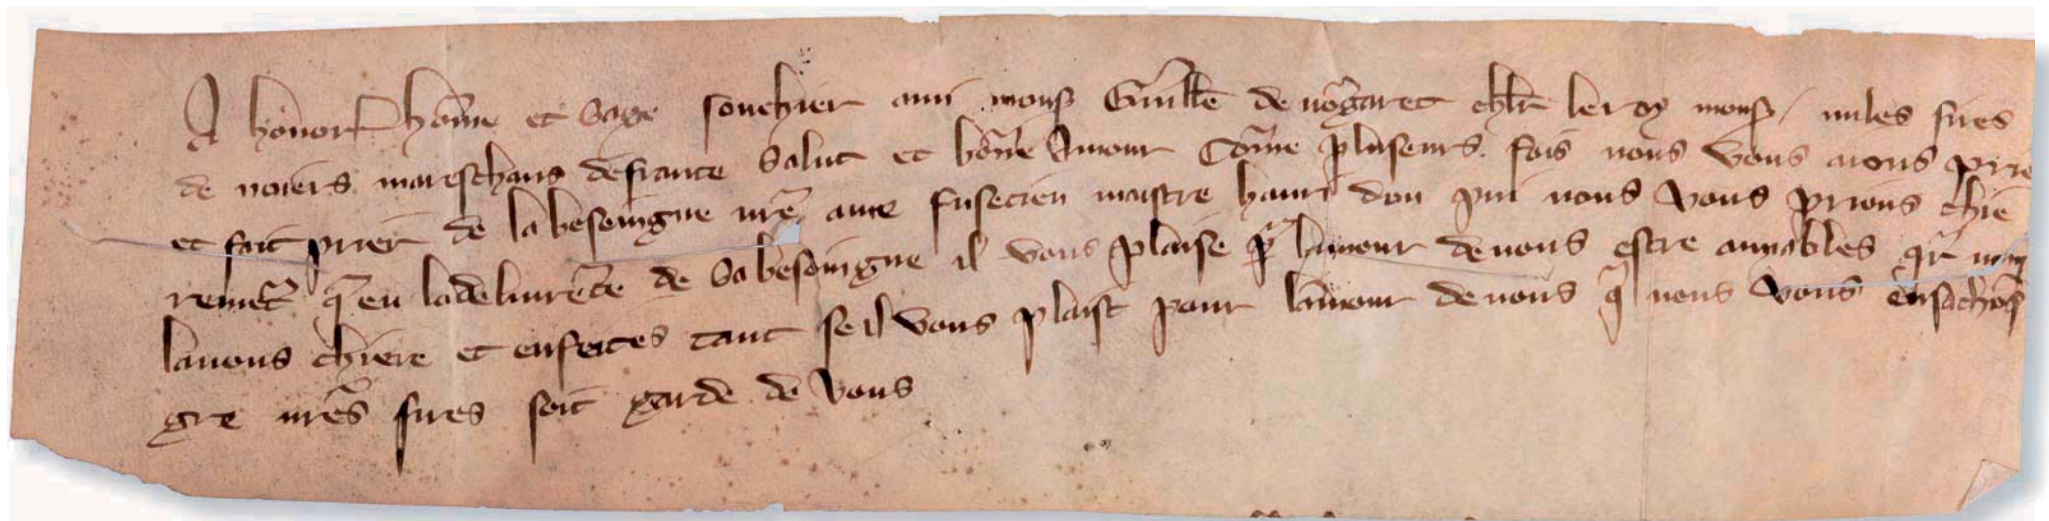 A honor hōme et sage son chier ami mons Guill̄e de nogaret chl̄r le roy mons miles sires
de noiers mareschaus de france salut et bōne amour Cōme pluseurs fois nous vous aions prie
et fait prier de la besoingne nr̄e ame fusecien maistre hanri dou pui nous vous prions chie
remēt q̄ en la deliurēce de sa besoingne il vous plaise p̄ lamour de nous estre amiables q̄r
lauons chiere et en feites tant se il vous plaist pour lamour de nous q̄ nous vous en sachōs
gre nr̄es sires soit garde de vous